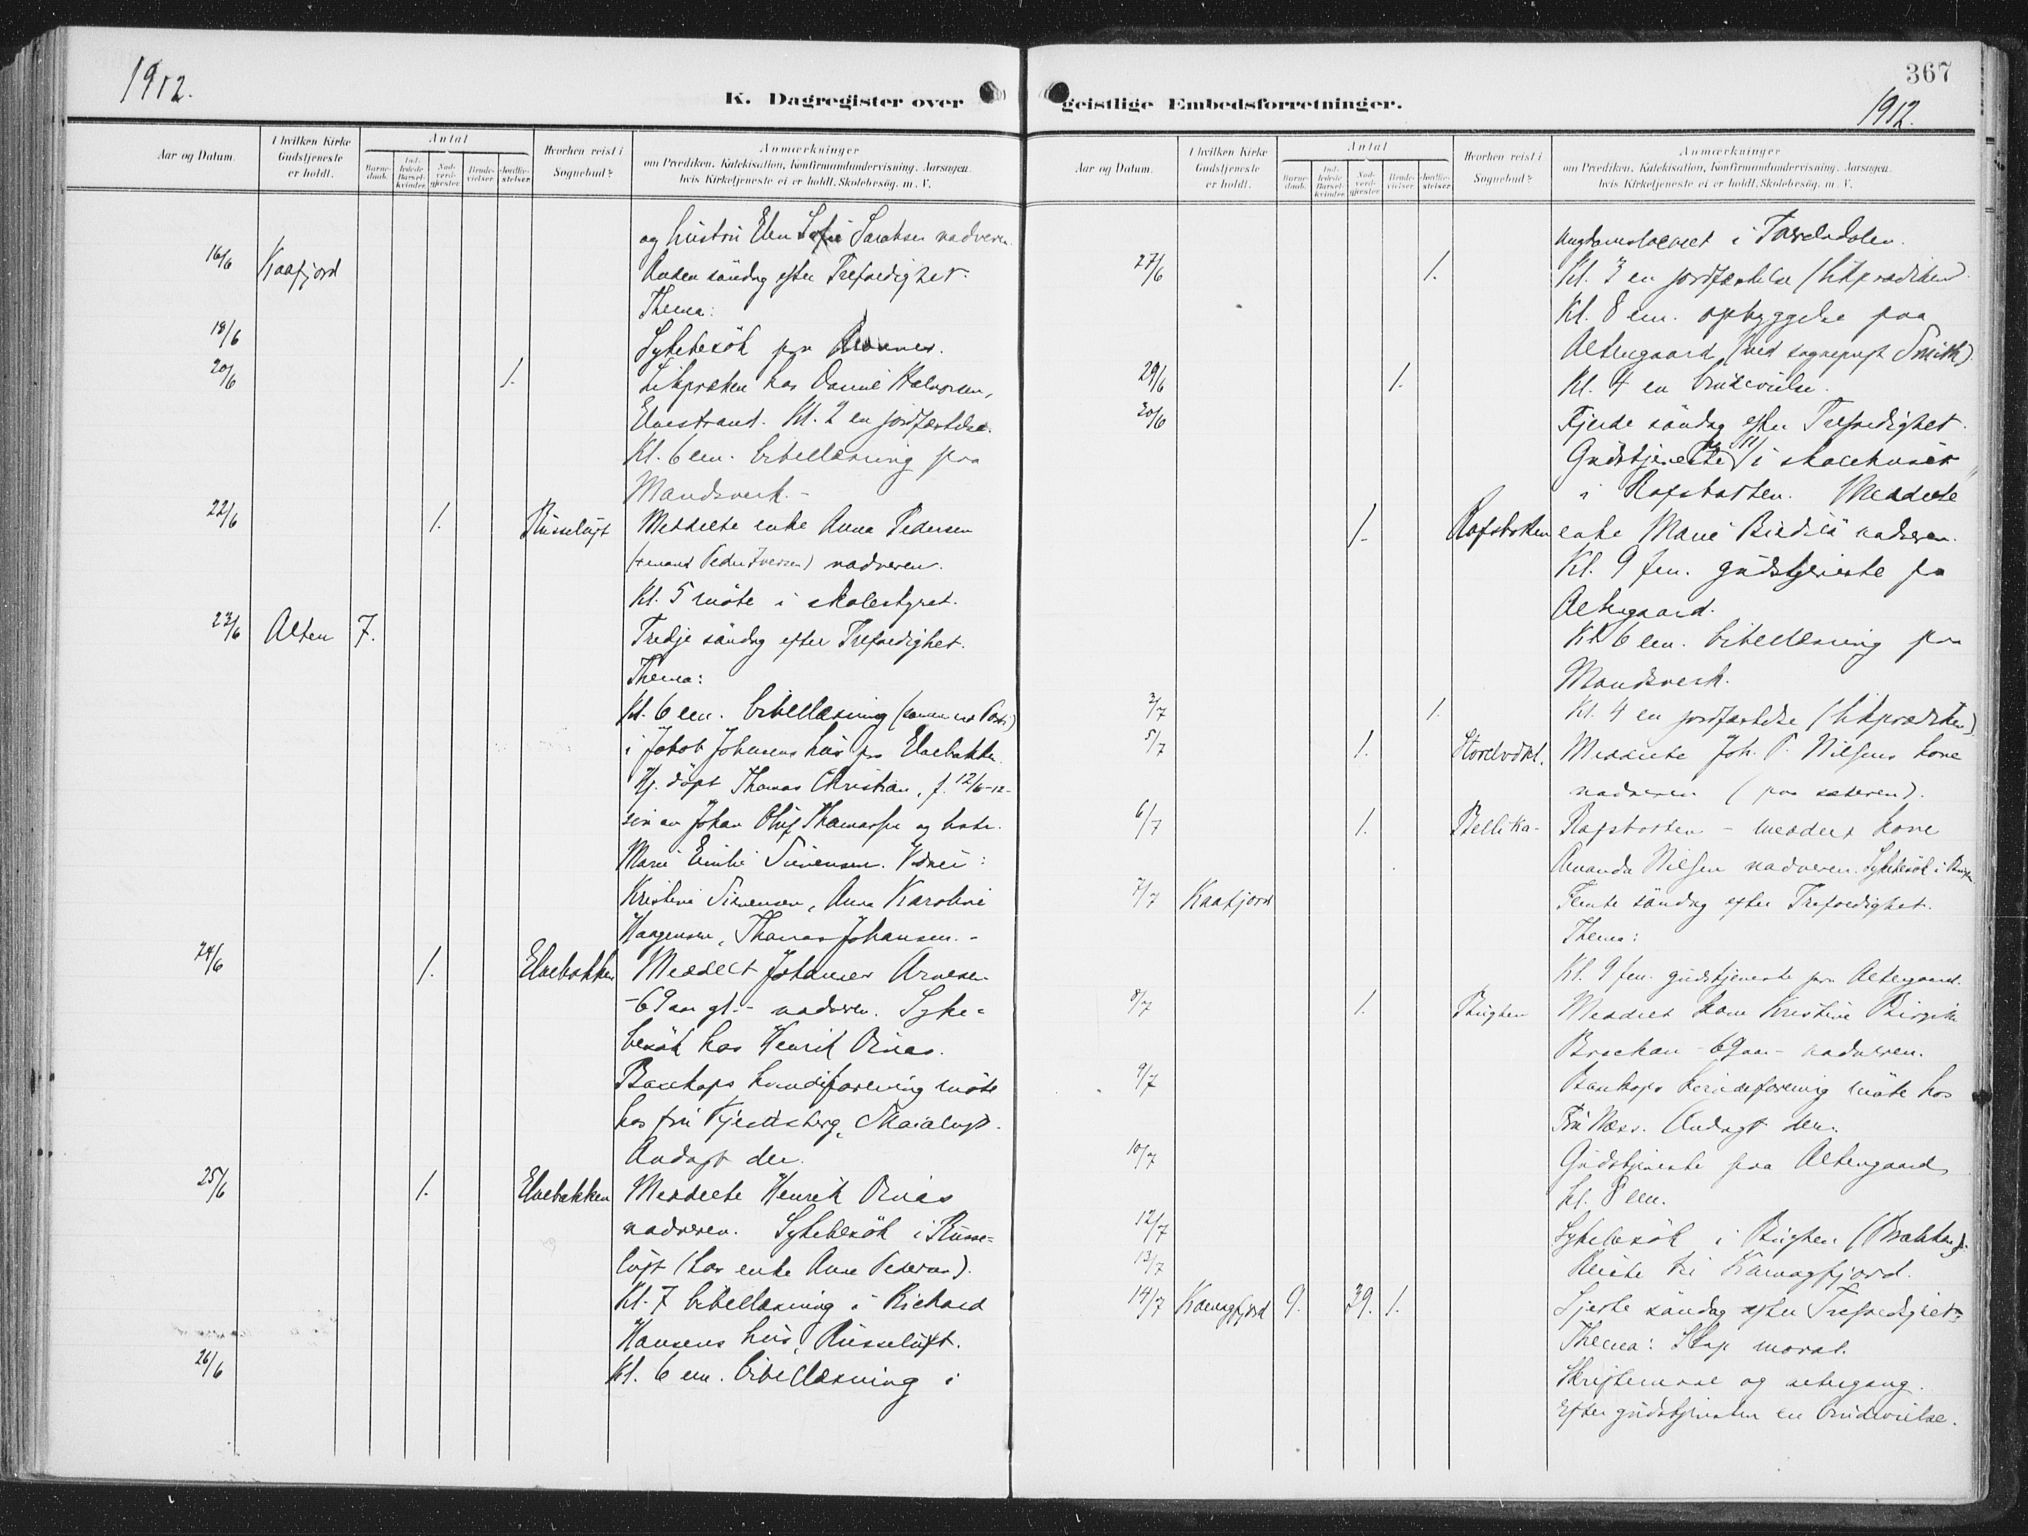 1912.
K. Dagregister over
Aar og Datum.
I hvilken Kirke Gudstjeneste er holdt.
Antal
Barnedaab.
Indledede Barselkvinder.
Nadverdgjester.
Brudevielser.
Jordfæstelser.
Hvorhen reist i Sognebud?
Anmærkninger
om Prædiken, Katekisation, Konfirmandundervisning, Aarsagen
hvis Kirketjeneste ei er holdt, Skolebesøg, m. V.
og hustru Elen Sofie nadveren.
16/6 Kaafjord Anden søndag efter Trefoldighet.
Thema:
18/6 Sykebesök paa
20/6 1. hos Halvorsen,
Elvestrand. Kl. 2 en jordfæstelse.
Kl. 6 em. bibellæsning paa
Mandsverk. -
22/6 1. Russeluft Meddelte enke Anna Pedersen
(mand Peder Iversen) nadveren.
Kl. 5 möte i skolestyret.
23/6 Alten 7. Tredje søndag efter Trefoldighet.
Thema:
Kl. 6 em. bibellæsning
i Jakob Johansens hus paa Elvebakken.
Hj. döpt Thomas Christian, f. 12/6-12-
sön av Johan Oluf og
Marie Emilie Simensen.
Kristine Simensen, Anna Karoline
Haagensen, Thomas Johansen. -
24/6 1. Elvebakken Meddelt Johannes Arnesen
- 69 aar gl. - nadveren. Syke=
besök hos Henrik
Bossekops kvindeforening möte
hos fru Kjeldsberg,
Andagt der.
25/6 1. Elvebakken Meddelte Henrik
nadveren. Sykebesök i Russe=
luft (hos enke Anna Pedersen).
Kl. 7 bibellæsning i Richard
Hansens hus, Russeluft.
26/6 Kl. 6 em. bibellæsning i
367
1912.
geistlige Embedsforretninger.
Aar og Datum.
I hvilken Kirke Gudstjeneste er holdt.
Antal
Barnedaab.
Indledede Barselkvinder.
Nadverdgjester.
Brudevielser.
Jordfæstelser.
Hvorhen reist i Sognebud?
Anmærkninger
om Prædiken, Katekisation, Konfirmandundervisning, Aarsagen
hvis Kirketjeneste ei er holdt, Skolebesøg, m. V.
ungdomslocalet i Tverelvdalen.
27/6 1. Kl. 3 en jordfæstelse (likprædiken)
Kl. 8 em. opbyggelse paa
Altengaard (ved sogneprest Smith).
29/6 1. Kl. 4 en brudevielse.
30/6 Fjerde søndag efter Trefoldighet.
Gudstjeneste kl. 11 i skolehuset
i Rafsbotten. Meddelte
1. Rafsbotten enke Marie nadveren.
Kl. 9 fm. gudstjeneste paa
Altengaard.
Kl. 6 em. bibellæsning paa
Mandsverk.
3/7 1. Kl. 4 en jordfæstelse (likprædiken)
5/7 1. Meddelte Joh. P. Nilsens kone
nadveren (paa sæteren).
6/7 1. Rafsbotten - meddelt kone
Amanda Nilsen nadveren. Sykebesök i
7/7 Kaafjord Femte søndag efter Trefoldighet.
Thema:
Kl. 9 fm. gudstjeneste paa Altengaard.
8/7 1. Bugten Meddelt kone Kristine
- 69 aar - nadveren.
9/7 Bossekops kvindeforening möte hos
Fru Næss. Andagt der.
10/7 Gudstjeneste paa Altengaard
kl. 8 em.
12/7 Sykebesök i Bugten
13/7 Reiste til Komagfjord.
14/7 Komagfjord 9. 39. 1. Sjette søndag efter Trefoldighet.
Thema: Skap moral.
Skriftemaal og altergang.
Efter gudstjenesten en brudevielse.